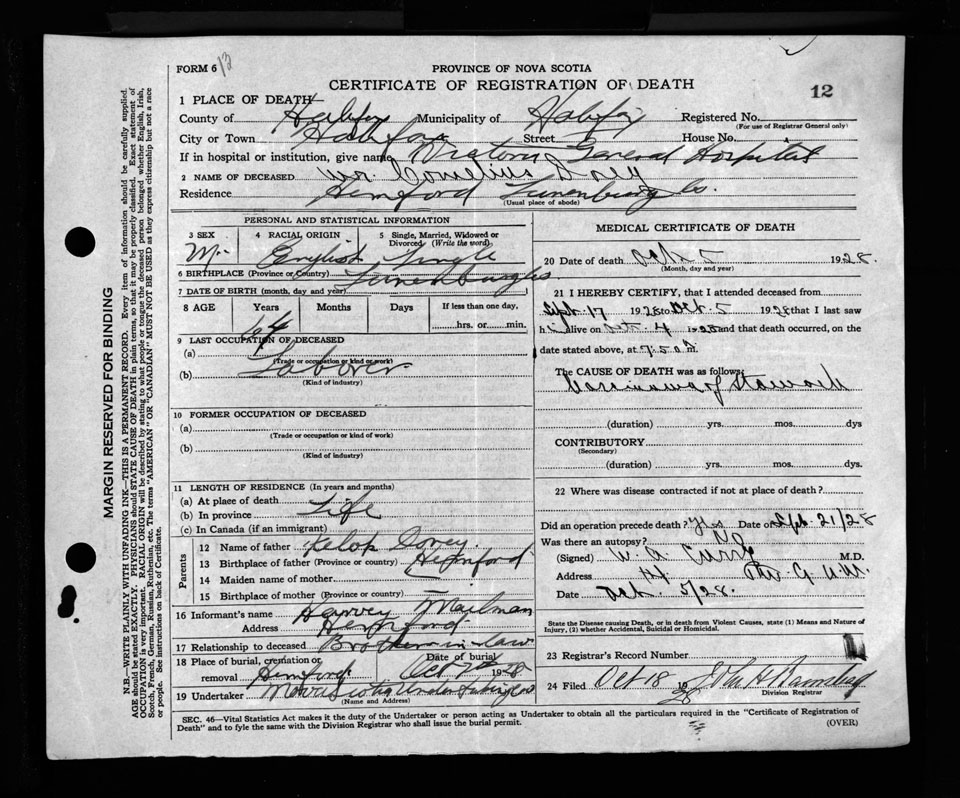 FORM 6
13
PROVINCE OF NOVA SCOTIA
CERTIFICATE OF REGISTRATION OF DEATH
12
1 PLACE OF DEATH
County of Halifax Municipality of Halifax Registered No.
(For use of Registrar General only)
City or Town Halifax Street House No.
If in hospital or institution, give name Victoria General Hospital
2 NAME OF DECEASED Mr Cornelius Dorey
Residence Hemford Lunenburg Co.
(Usual place of abode)
PERSONAL AND STATISTICAL INFORMATION
3 SEX 4 RACIAL ORIGIN 5 Single, Married, Widowed or Divorced (Write the word)
M. English Single
6 BIRTHPLACE (Province or Country) Lunenburg Co
7 DATE OF BIRTH (month, day and year)
8 AGE Years Months Days If less than one day,
64 hrs. or min.
9 LAST OCCUPATION OF DECEASED
(a)
(Trade or occupation or kind of work)
(b) Laborer
(Kind of industry)
10 FORMER OCCUPATION OF DECEASED
(a)
(Trade or occupation or kind of work)
(b)
(Kind of industry)
11 LENGTH OF RESIDENCE (In years and months)
(a) At place of death
(b) In province Life
(c) In Canada (if an immigrant)
Parents
12 Name of father Dorey
13 Birthplace of father (Province or country) Hemford
14 Maiden name of mother
15 Birthplace of mother (Province or country)
16 Informant's name Harvey Mailman
Address Hemford
17 Relationship to deceased Brother in law
18 Place of burial, cremation or removal Hemford Date of burial Oct 7th 1928
19 Undertaker Nova Scotia Undertaking Co
(Name and Address)
MEDICAL CERTIFICATE OF DEATH
20 Date of death Oct 5 1928.
(Month, day and year)
21 I HEREBY CERTIFY, that I attended deceased from
Sept. 17 1928 to Oct. 5 1928 that I last saw
him alive on Oct. 4 1928 and that death occurred, on
date stated above, at 7.50 a m.
The CAUSE OF DEATH was as follows:
Carcinoma of Stomach
(duration) yrs. mos. dys
CONTRIBUTORY
(Secondary)
(duration) yrs. mos. dys.
22 Where was disease contracted if not at place of death?
Did an operation precede death? yes Date of Sept. 21/28
Was there an autopsy? no
(Signed) W. A. Curry M.D.
Address
Date Oct. 5/28.
State the Disease causing Death, or in death from Violent Causes, state (1) Means and Nature of Injury, (2) whether Accidental, Suicidal or Homicidal.
23 Registrar's Record Number
24 Filed Oct 18 1928 John H
Division Registrar
SEC. 46—Vital Statistics Act makes it the duty of the Undertaker or person acting as Undertaker to obtain all the particulars required in the "Certificate of Registration of
Death" and to fyle the same with the Division Registrar who shall issue the burial permit.
(OVER)
MARGIN RESERVED FOR BINDING
N.B.—WRITE PLAINLY WITH UNFADING INK—THIS IS A PERMANENT RECORD. Every item of information should be carefully supplied.
AGE should be stated EXACTLY. PHYSICIANS should STATE CAUSE OF DEATH in plain terms, so that it may be properly classified. Exact statement of
OCCUPATION is very important. RACIAL ORIGIN will be described by stating to what people or tongue the deceased person belonged whether English, Irish,
Scotch, French, German, Russian, Ruthenian, etc. The terms "AMERICAN" OR "CANADIAN" MUST NOT BE USED as they express citizenship but not a race
or people. See instructions on back of Certificate.